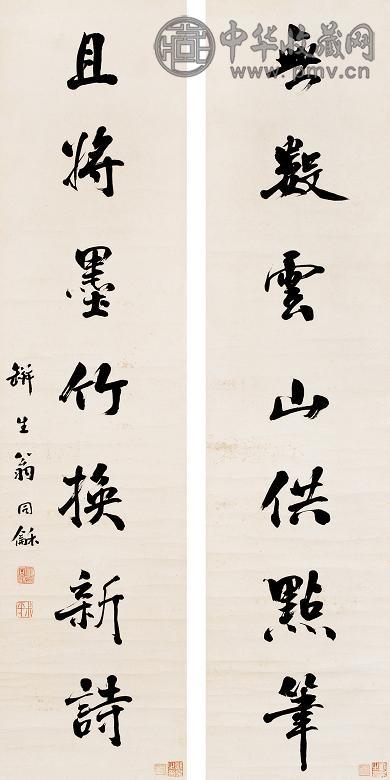 無數雲山供點筆
且將墨竹換新詩
缾生翁同龢
中华收藏网
www.pmv.cn